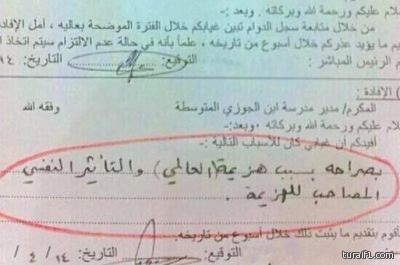 سلام عليكم ورحمة الله وبركاته . وبعد:-
من خلال متابعة سجل الدوام تبين غيابكم خلال الفترة الموضحة بعاليه ، أمل الإفادة
ما يؤيد عذركم خلال أسبوع من تاريخه ، علماً بأنه في حالة عدم الالتزام سيتم اتخاذ
م الرئيس المباشر : التوقيع: التاريخ: ١٤
) الإفادة :
المكرم/ مدير مدرسة ابن الجوزي المتوسطة وفقه الله
لام عليكم ورحمة الله وبركاته . وبعد:-
أفيدكم أن غيابي كان للأسباب التالية :-
بصراحه بسبب هزيمة (العالمي) والتأثير النفسي
المصاحب للهزيمة .
أقوم بتقديم ما يثبت ذلك خلال أسبوع من تاريخه.
التوقيع: التاريخ: ١٤ / ٤ /
turaif1.com